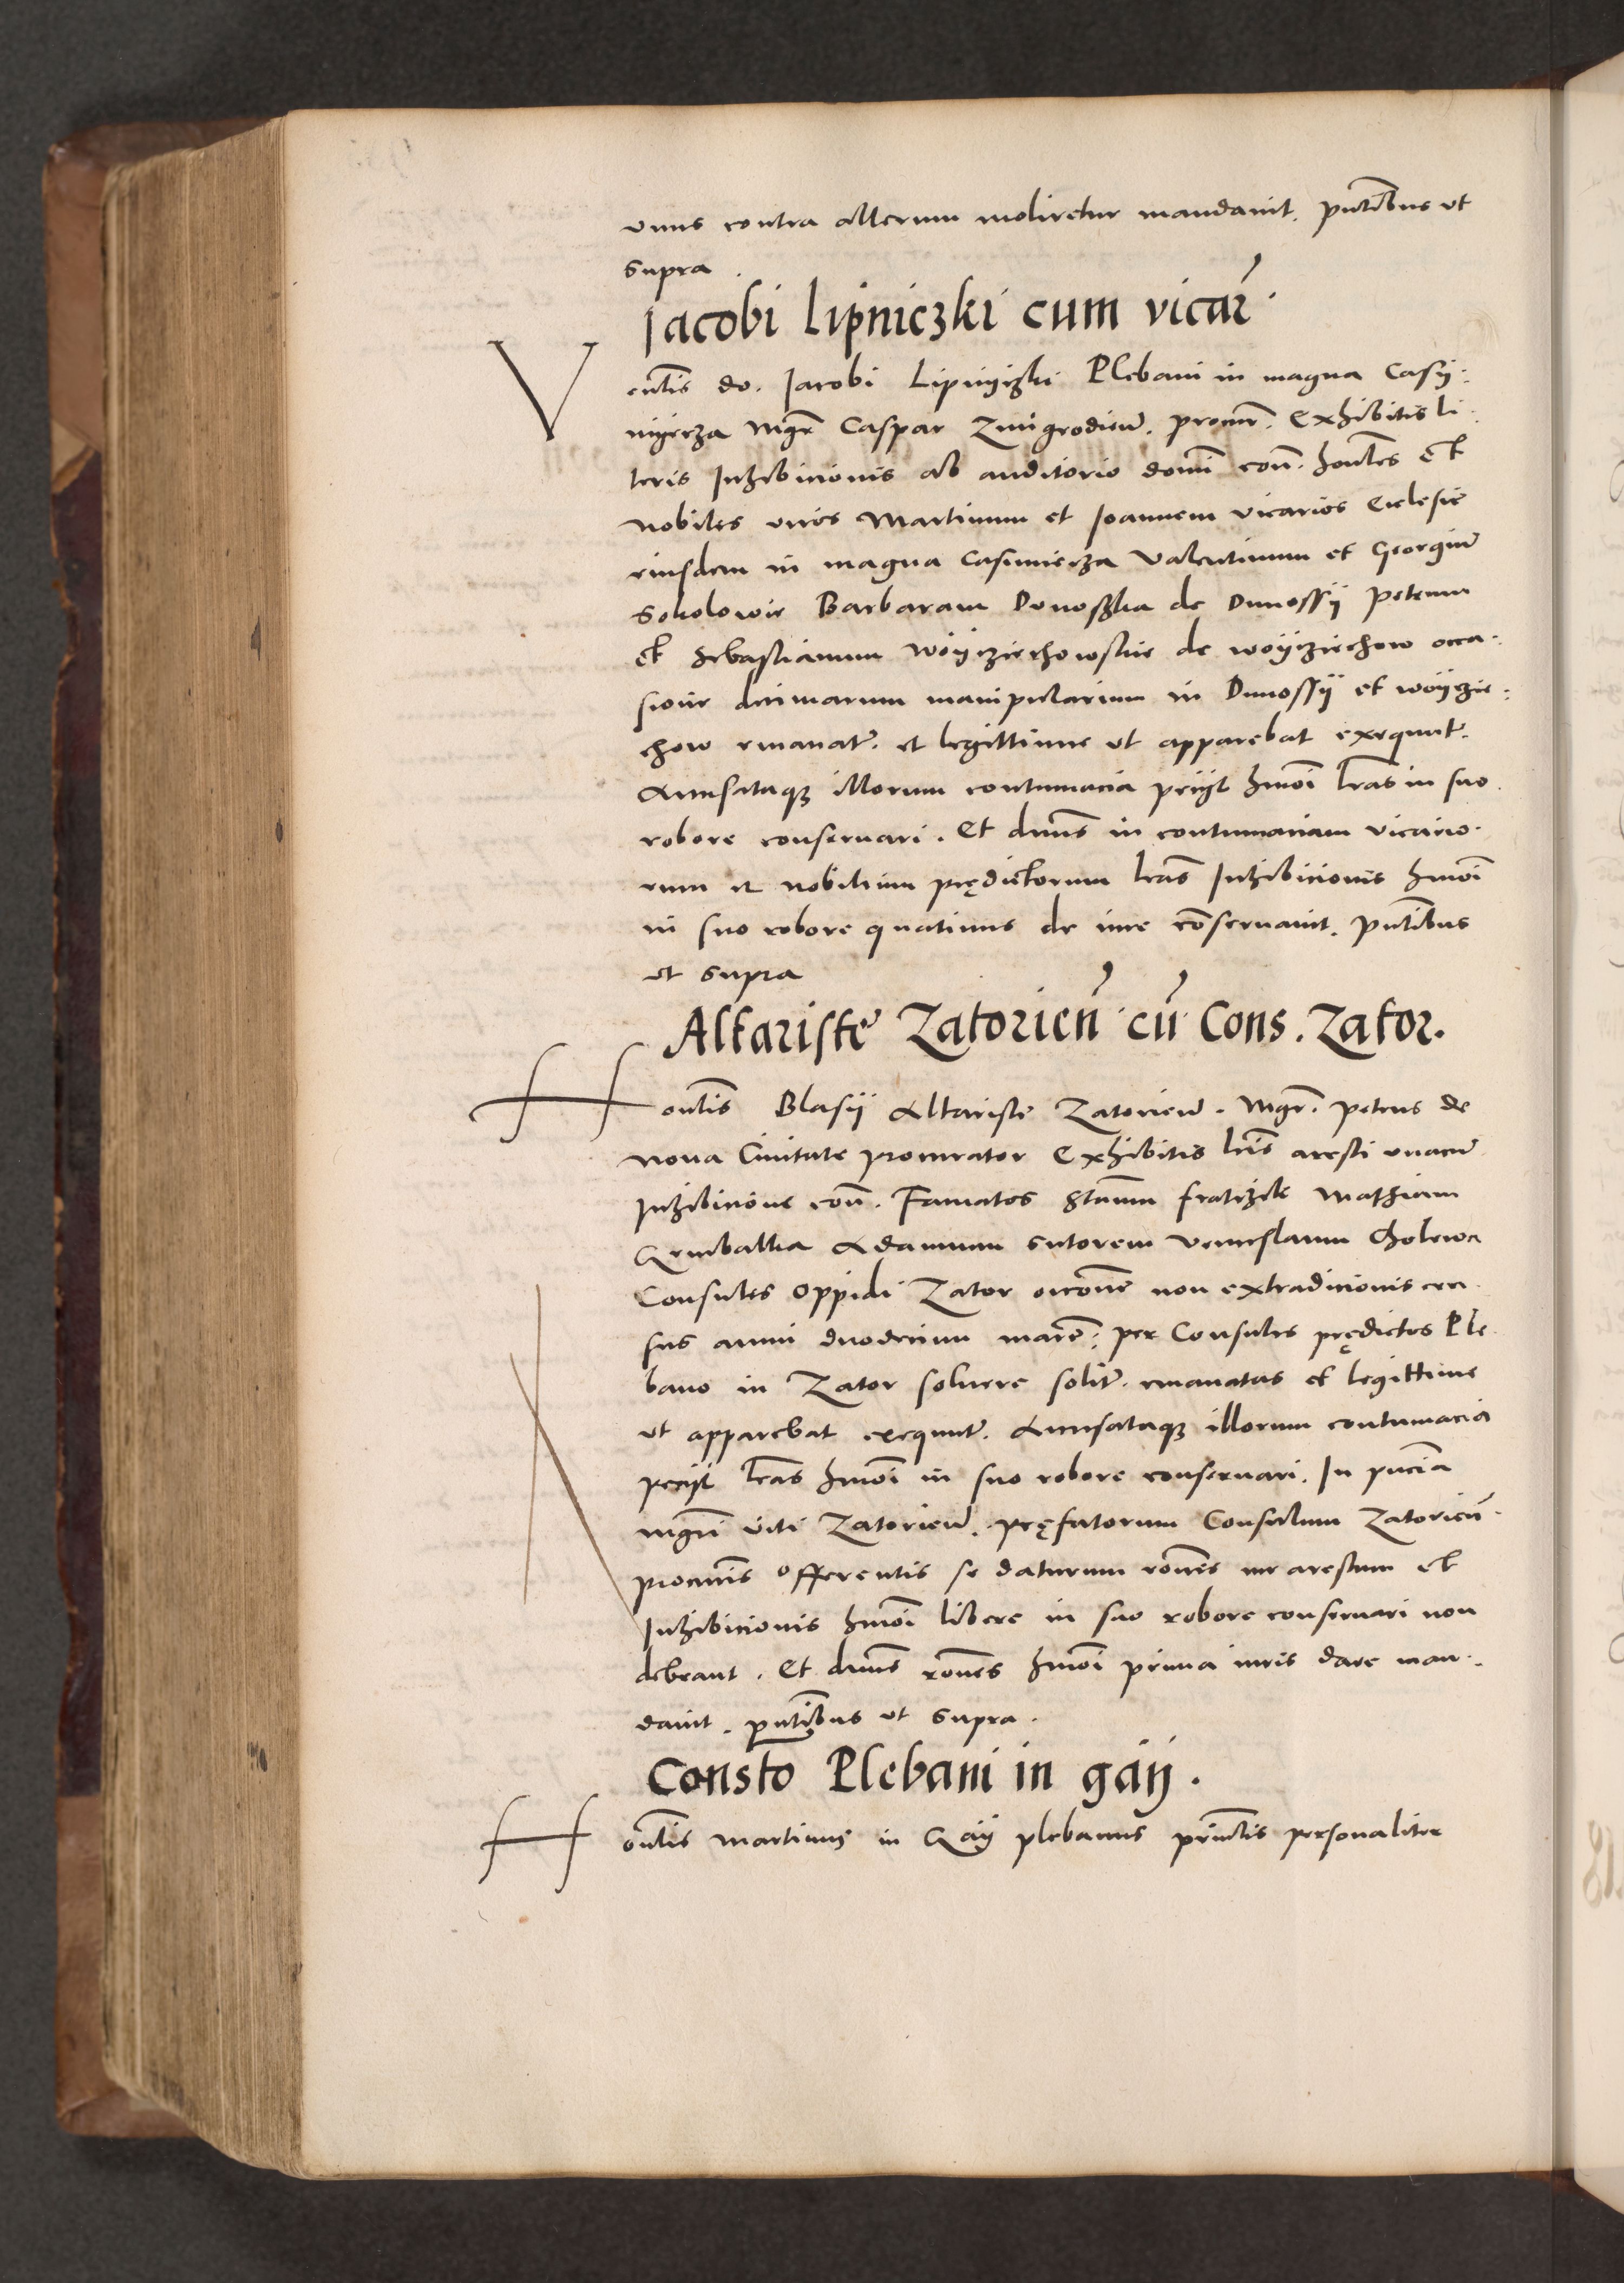 vnus contra alterum moliretur mandauit. pntibus vt
supra.
Jacobi Lipniczki cum vicar̃.
Ventis do. Jacobi Lipnyczki Plebani in magna Casy:
myrcza Mgr̃ Caspar Zmigrodien̄. procur̃. Exhibitis li
teris Inhibicionis ab auditorio domi con̄. honctes et
nobiles viros Martinum et Joannem vicarios Ecclesie
eiusdem in magna Casimircza Valentinum et Georgiū
Sokolowie Barbaram Donosska de Donossy petrum
et Sebastianum Woyczirchowskie de woyczirchow occa-
sione decimarum manipularium in Donossy et woyczir:
chow emanat. et legittime vt apparebat exequut.
Accusataqʒ illorum contumacia pecyt hmoi lras in suo
robore conseruari. Et dnus in contumaciam vicario-
rum et nobilium prędictorum lras Inhibicionis hmoi
in suo robore quatinus de iure cōseruauit. pntibus
vt supra
Altariste Zatorien̄ cū Cons. Zator.
Honctis Blasy Altariste Zatorien̄. Mgr̃. petrus de
noua Ciuitate procurator Exhibitis lris aresti vnacū
Inhibicione con̄. Famatos Stanm fratrzik Mathiam
Grmbalka Adamum sutorem Venceslaum Cholewa
Consules oppidi Zator occone non extradicionis cen
sus anni duodecim marc. per Consules prędictos Ple
bano in Zator soluere solit. emanatas et legittime
vt apparebat exequut. Accusataqʒ illorum contumacia
pecyt lras hmoi in suo robore conseruari. In pncia
mgri viti Zatorien̄. pręfatorum Consulum Zatorien̄.
procuris offerentis se daturum rones cur arestum et
Inhibicionis hmoi libere in suo robore conseruari non
debeant. Et dnus rones hmoi prima iuris dare man-
dauit. pntibus vt supra.
Consto Plebani in gay.
Honctis Martinus in Gay plebanus princtis personaliter